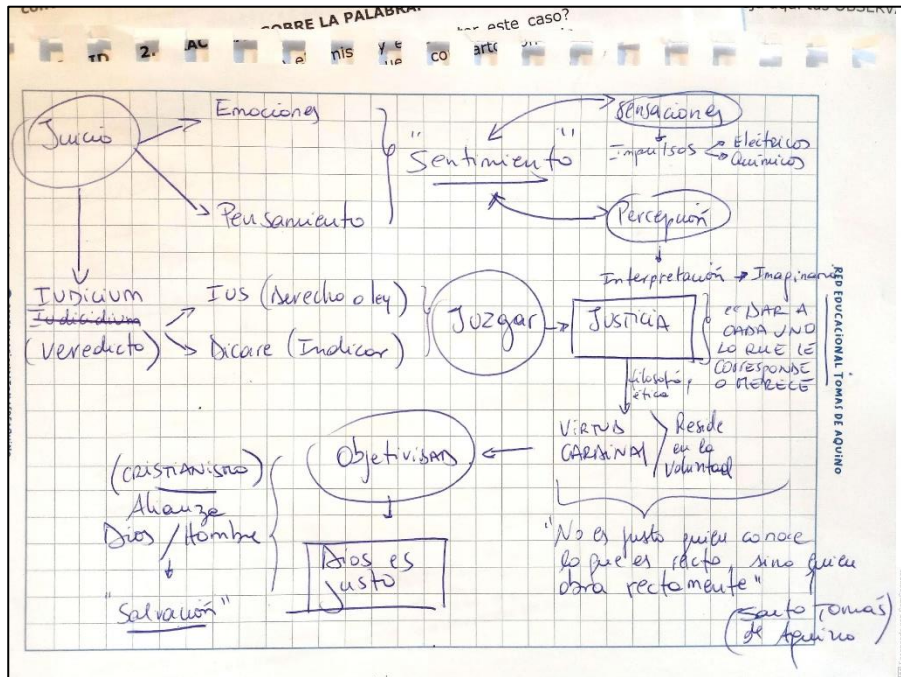 SOBRE LA PALABRA.
este caso?
2.
Juicio
Emociones
Pensamiento
"Sentimiento"
Sensaciones
Impulsos
Eléctricos
Químicos
Percepción
Interpretación → Imaginario
IUDICIUM
(Veredicto)
IUS (Derecho o ley)
Dicare (Indicar)
Juzgar
JUSTICIA
"DAR A
CADA UNO
LO QUE LE
CORRESPONDE
O MERECE
filosofía,
ética
VIRTUD
CARDINAL
Reside
en la
Voluntad
Objetividad
Dios es
justo
(CRISTIANISMO)
Alianza
Dios / Hombre
"Salvación"
"No es justo quien conoce
lo que es recto, sino quien
obra rectamente"
(Santo Tomás
de Aquino)
RED EDUCACIONAL TOMAS DE AQUINO